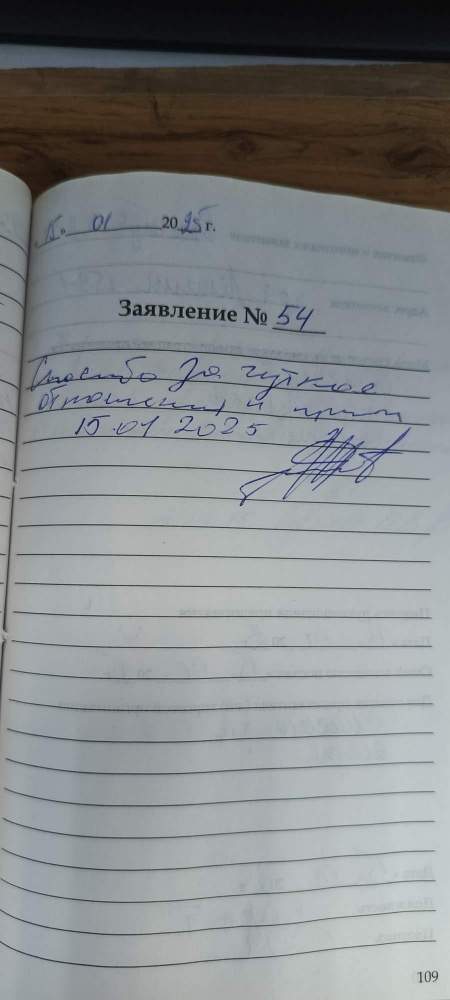 15. 01 2025 г.
Заявление № 54
Спасибо за чуткое
отношения и прием
15.01 2025
109